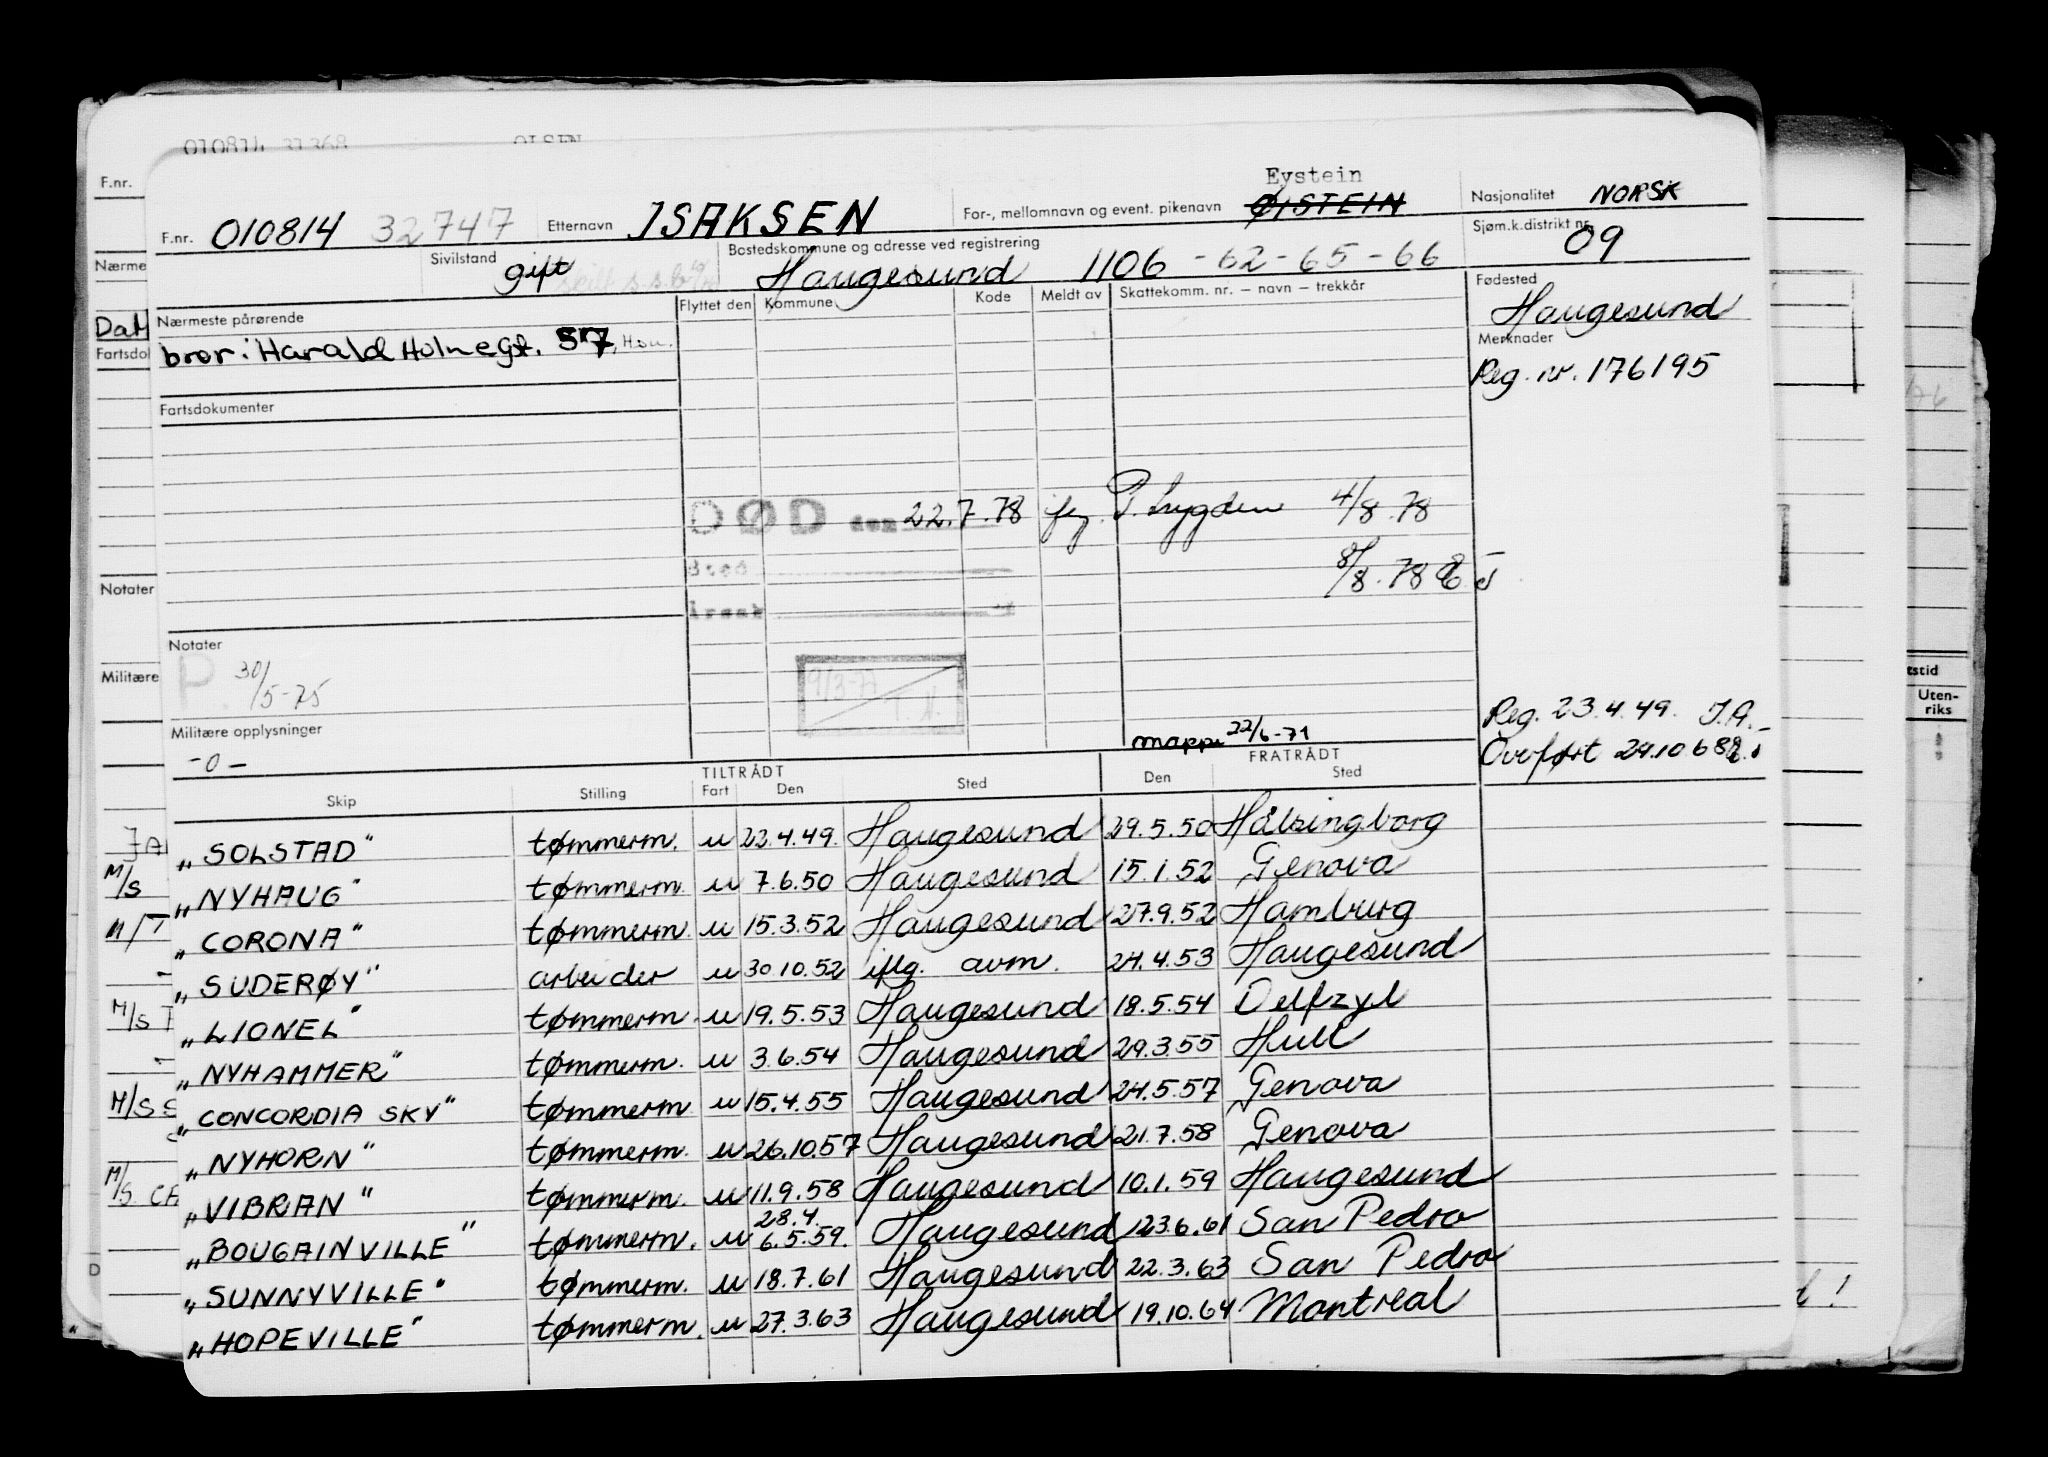 010814 31368 OLSEN
Eystein
F.nr. 010814 32747 Etternavn ISAKSEN For-, mellomnavn og event. pikenavn ØISTEIN Nasjonalitet NORSK
Sivilstand gift Bostedskommune og adresse ved registrering Haugesund 1106 - 62 - 65 - 66 Sjøm.k.distrikt nr. 09
Nærmeste pårørende Flyttet den Kommune Kode Meldt av Skattekomm. nr. — navn — trekkår Fødested Haugesund
bror: Harald Holmegt. 57, Hsu.
Merknader
Reg. nr. 176195
Fartsdokumenter
DØD den 22.7.78 4/8.78
Sted 8/8.78
Årsak
Notater
P. 30/5-75
9/3-77
Militære opplysninger
-0-
mappe 22/6-71
Reg. 23.4.49. J.A.
Overført 24.10.68
TILTRÅDT FRATRÅDT
Skip Stilling Fart Den Sted Den Sted
„SOLSTAD" tømmerm. u 22.4.49. Haugesund 29.5.50 Hålsingborg
„NYHAUG" tømmerm. u 7.6.50 Haugesund 15.1.52 Genova
„CORONA" tømmerm. u 15.3.52 Haugesund 27.9.52 Hamburg
„SUDERØY" arbeider u 30.10.52 iflg. avm. 24.4.53 Haugesund
„LIONEL" tømmerm. u 19.5.53 Haugesund 18.5.54 Delfzyl
„NYHAMMER" tømmerm. u 3.6.54 Haugesund 29.3.55 Hull
„CONCORDIA SKY" tømmerm u 15.4.55 Haugesund 24.5.57 Genova
„NYHORN" tømmerm. u 26.10.57 Haugesund 21.7.58 Genova
„VIBRAN" tømmerm. u 11.9.58 Haugesund 10.1.59 Haugesund
28.4.
„BOUGAINVILLE" tømmerm. u 6.5.59. Haugesund 23.6.61 San Pedro
„SUNNYVILLE" tømmerm. u 18.7.61 Haugesund 22.3.63 San Pedro
„HOPEVILLE" tømmerm. u 27.3.63 Haugesund 19.10.64 Montreal
F.nr.
Nærme
Fartsdol
Notater
Militære
M/S
M/T
M/S
M/S S
M/S
Uten-
riks